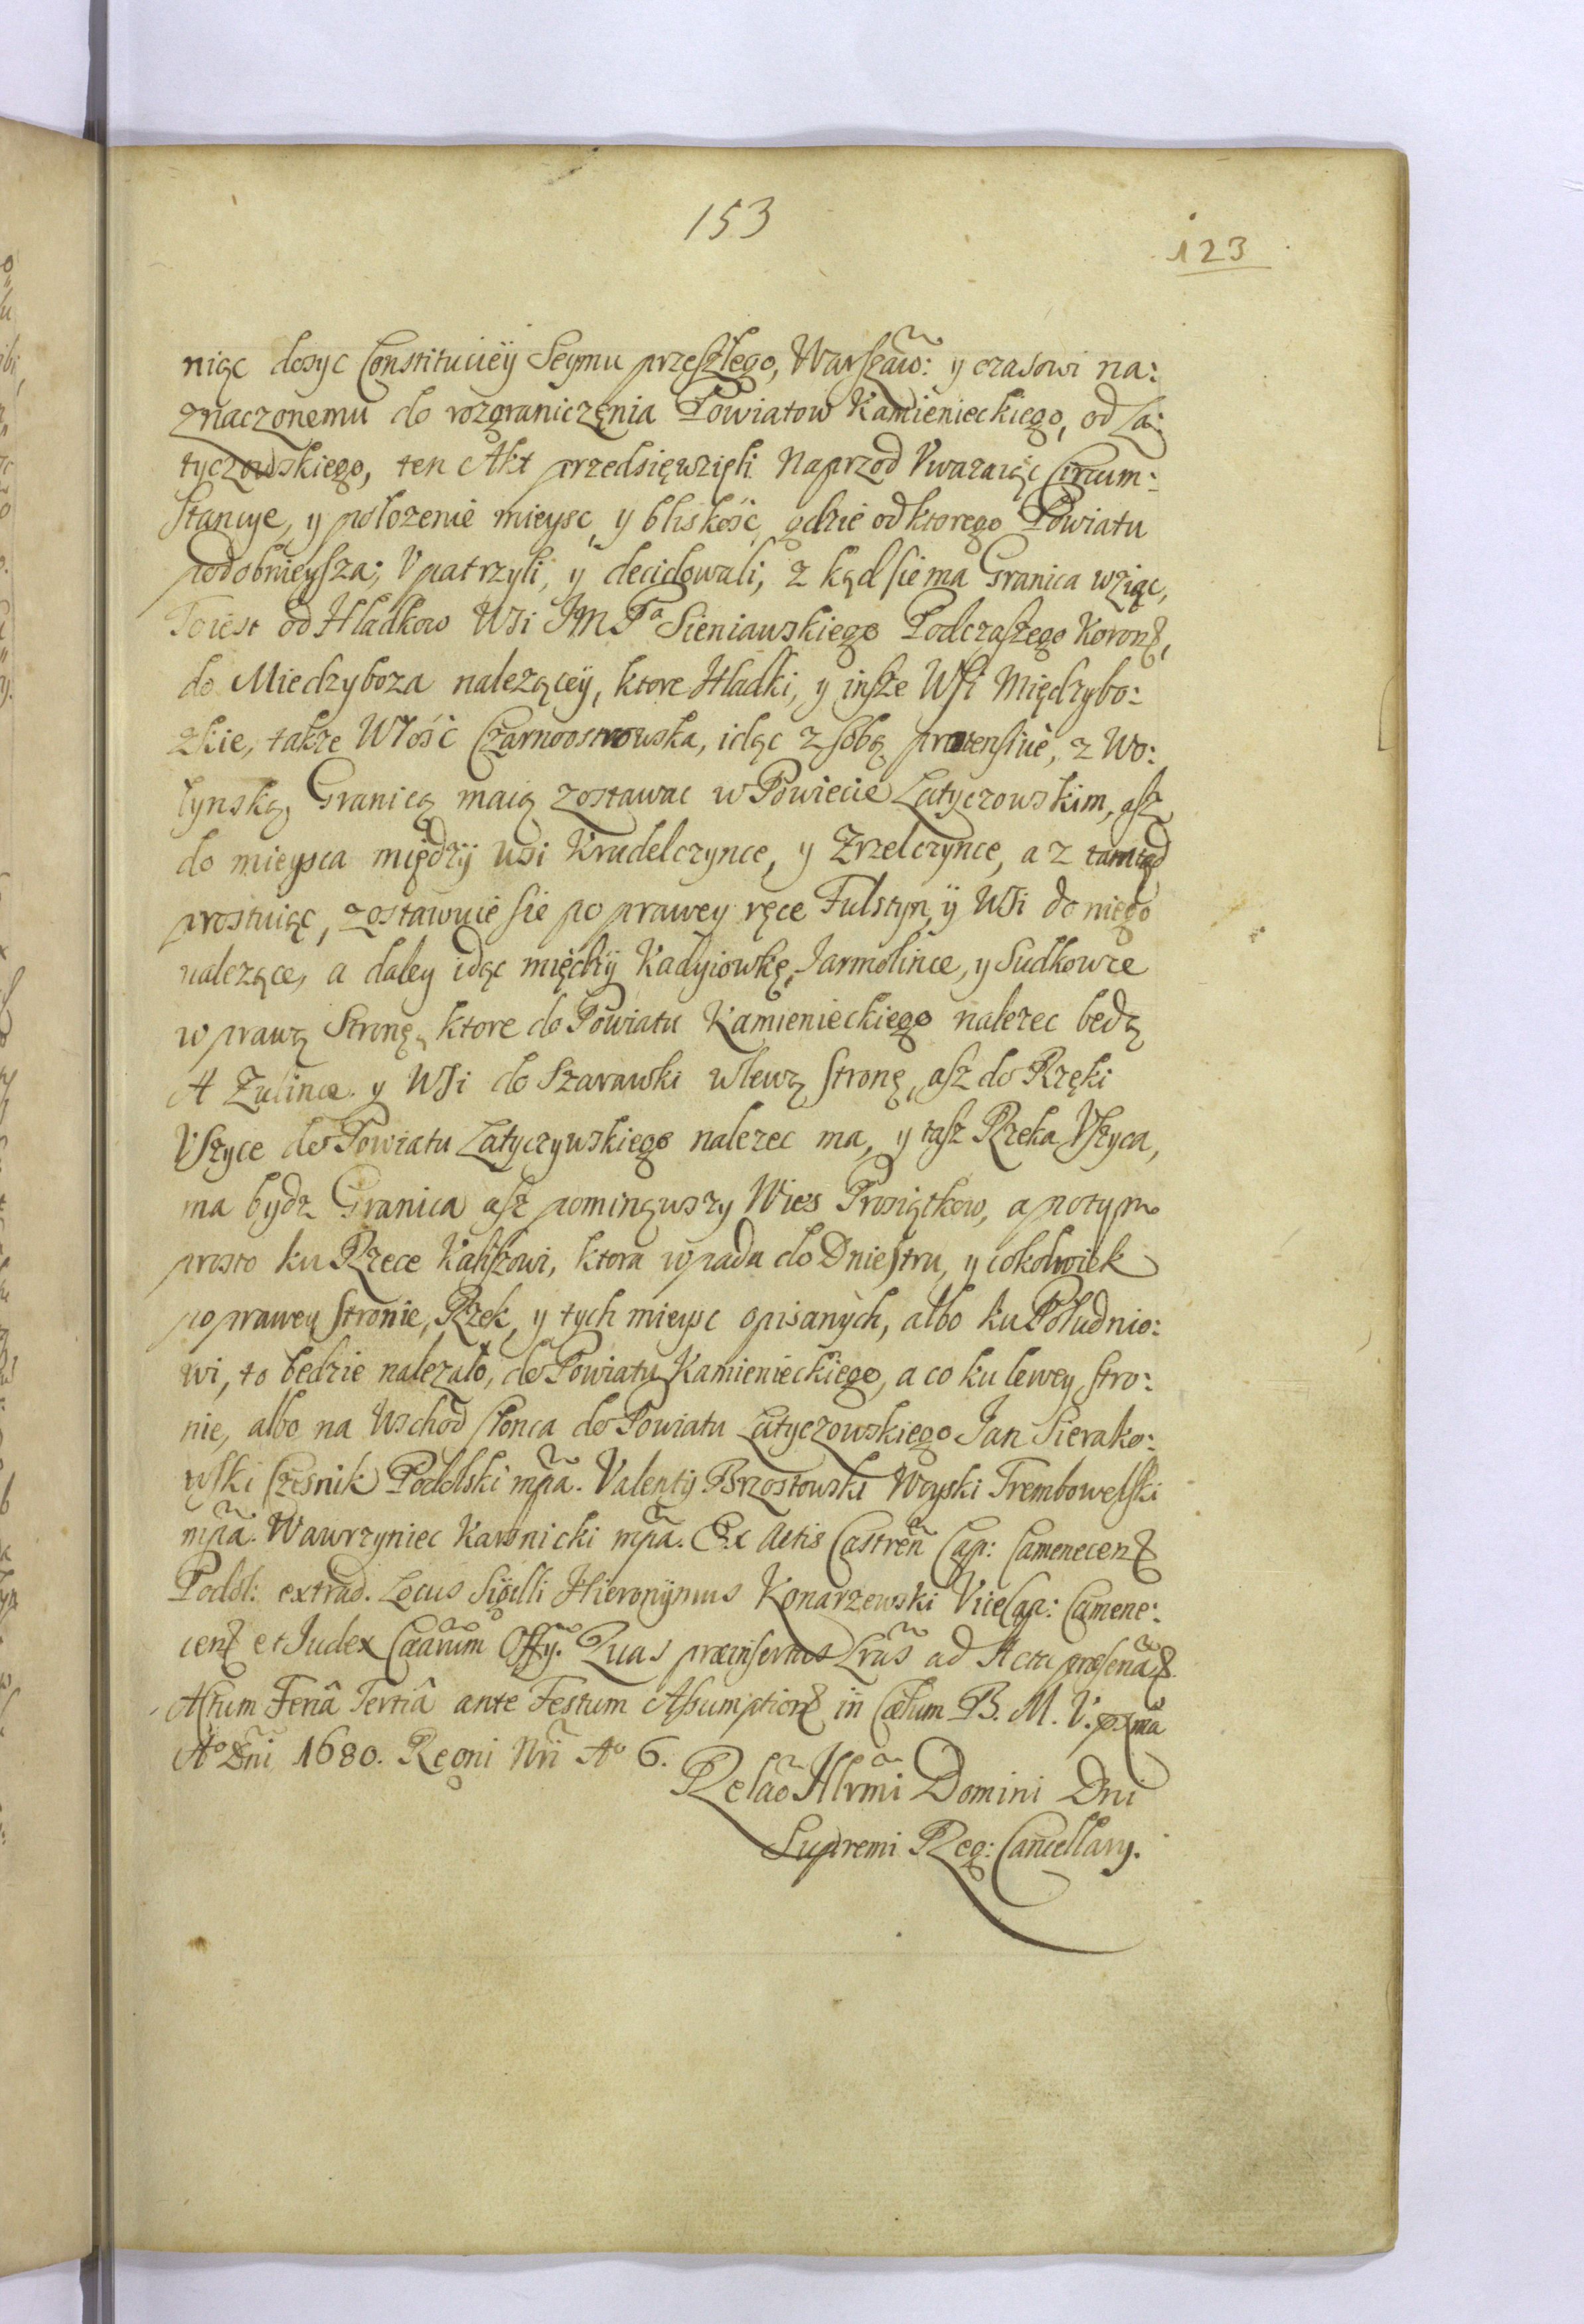 153
123
niąc dosyc Constituciëy Seymu przeszłego, Warszaw̃: y czasowi na:
znaczonemu do rozgraniczęnia Powiatow Kamienieckiego, od La:
tyczowskiego, ten Akt przedsięwzięli Naprzod Uwazaiąc Circum:
stancye, y położenie mieysc, y bliskość, gdzie od ktorego Powiatu
podobnieysza; Upatrzyli, ÿ decidowali, z kąd sie ma Granica wziąc,
To iest od Hladkow Wsi JM Pᵃ Sieniawskiego Podczaszego Koronꝫ,
do Miedzyboza nalezącëy, ktore Hladki, y insze Wsi Międzybo:
zkie, także Włość Czarnoostrowska, idąc z sobą protensive, z Wo:
łynską, Granicą maią zostawac w Powiecie Latyczowskim, asz
do mieysca międzÿ wsi Krudelczynce, y Zrzelczynce, a z tamtąd
prostuiąc, zostawuie sie po prawey ręce Fulstyn, ÿ Wsi do niego
nalezące, a daley idąc międzÿ Kadyiowkę, Jarmolince, y Sudkowce
w prawą Stronę, ktore do Powiatu Kamienieckiego nalezec będą
A Zulince y Wsi do Szarawki w lewą stronę, asz do Rzęki
Uszyce do Powiatu Latyczywskiego nalezec ma, y tasz Rzeka Uszyca,
ma bydz Granica asz pominąwszy Wies Prosiątkow, a potym
prosto ku Rzece Kalszowi, ktora wpada do Dniestru, y cokolwiek
po prawey stronie, Rzek, y tych mieysc opisanych, albo ku Południo:
wi, to będzie nalezało, do Powiatu Kamienieckiego, a co ku lewey stro:
nie, albo na Wschod słonca do Powiatu Latyczowskiego Jan Sierako:
wski Czesnik Podolski mp̃a. Valenty Brzostowski Woyski Trembowelski
mp̃a. Wawrzyniec Karsnicki mp̃a. Ex Actis Castreñ Cap: Camenecenꝫ
Podol: extrad. Locus Sigilli Hieronÿmus Konarzewski ViceCap: Camene:
cenꝫ et Judex Cãarum Offy. Quas præinsertas Lr̃as ad Acta præsenã
Actum Feriâ Tertiâ ante Festum Assumptionꝫ in Cœlum B. M. V. px̃ma
Aº Dñi 1680. Regni Nr̃i Aº 6.
Relaõ Illrm̃i Domini Dni
Supremi Reg: Cancellary.